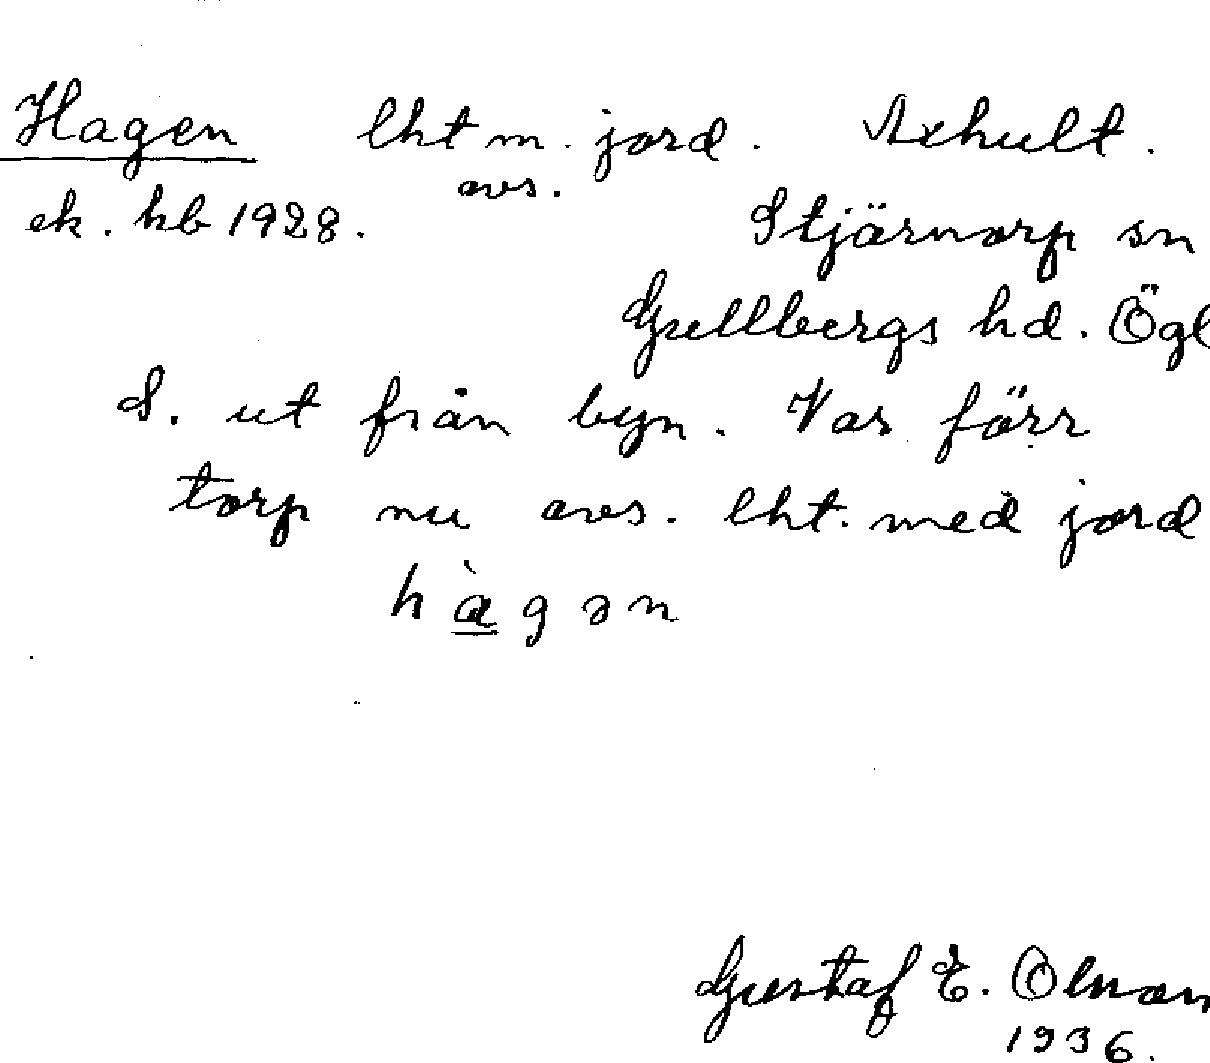 Hagen lht m. jord. Axhult.
avs.
ek. hb 1928. Stjärnorp sn
Gullbergs hd. Ögl
S. ut från byn. Var förr
torp nu avs. lht. med jord
hàgən
Gustaf E. Olman
1936.